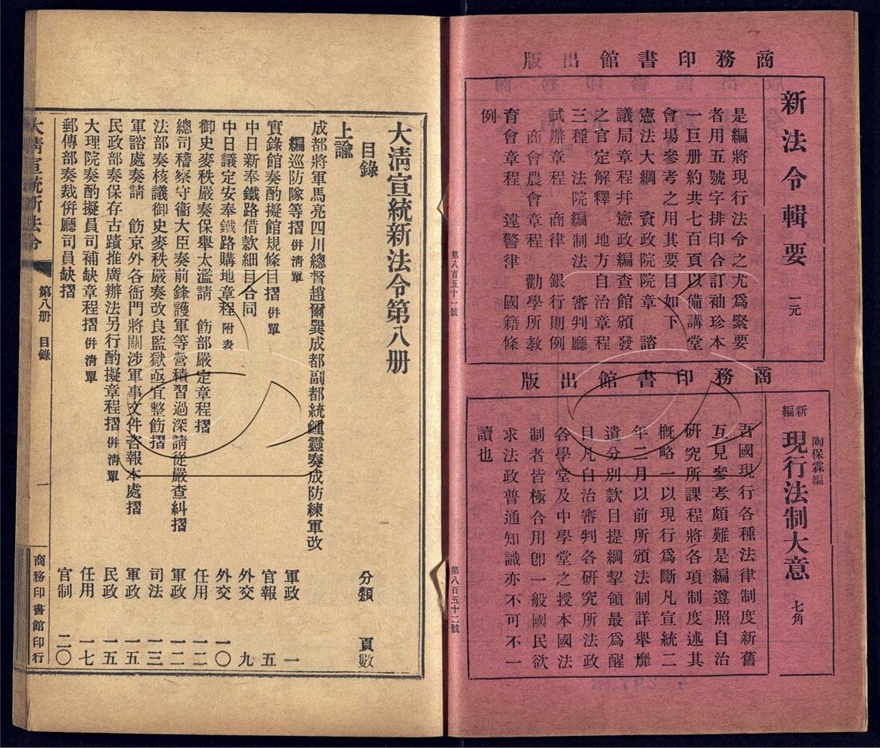 商務印書館出版
新法令輯要 一元
是編將現行法令之尤爲緊要
者用五號字排印合訂袖珍本
一巨册約共七百頁以備講堂
會場參考之用其要目如下
憲法大綱 資政院院章 諮
議局章程幷憲政編查館頒發
之官定解釋 地方自治章程
三種 法院編制法 審判廳
試辦章程 商律 銀行則例
商會農會章程 勸學所教
育會章程 違警律 國籍條
例
商務印書館出版
新編 陶保霖編
現行法制大意 七角
吾國現行各種法律制度新舊
互見參考頗難是編遵照自治
研究所課程將各項制度述其
概略一以現行爲斷凡宣統二
年二月以前所頒法制詳舉靡
遺分別款目提綱挈領最爲醒
目凡自治審判各研究所法政
各學堂及中學堂之授本國法
制者皆極合用卽一般國民欲
求法政普通知識亦不可不一
讀也
第八百五十一號
第八百五十二號
大清宣統新法令第八册
目錄 分類 頁數
上諭
成都將軍馬亮四川總督趙爾巽成都副都統鍾靈奏成防練軍改
編巡防隊等摺 併清單 軍政 一
實錄館奏酌擬館規條目摺 併單 官報 五
中日新奉鐵路借款細目合同 外交 九
中日議定安奉鐵路購地章程 附表 外交 一〇
御史麥秩嚴奏保舉太濫請 飭部嚴定章程摺 任用 一二
總司稽察守衞大臣奏前鋒護軍等營積習過深請從嚴查糾摺 軍政 一二
法部奏核議御史麥秩嚴奏改良監獄亟宜整飭摺 司法 一三
軍諮處奏請 飭京外各衙門將關涉軍事文件咨報本處摺 軍政 一五
民政部奏保存古蹟推廣辦法另行酌擬章程摺 併清單 民政 一五
大理院奏酌擬員司補缺章程摺 併清單 任用 一七
郵傳部奏裁併廳司員缺摺 官制 二〇
大清宣統新法令 第八册 目錄 一 商務印書館印行